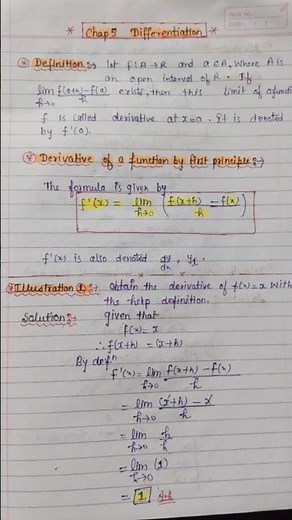 * Chap 5 Differentiation *
* Definition :→ let f: A → R and a ∈ A, where A is
an open interval of R. If
lim h→0 f(a+h) - f(a) / h exists, then this limit of a function
f is called derivative at x=a. It is denoted
by f'(a).
* Derivative of a function by first principle :→
The formula is given by
f'(x) = lim h→0 ( f(x+h) - f(x) / h )
f'(x) is also denoted dy/dx, y₁.
* Illustration 1 :→ obtain the derivative of f(x) = x with
the help definition.
Solution :→ given that
f(x) = x
∴ f(x+h) = (x+h)
By defⁿ
f'(x) = lim h→0 f(x+h) - f(x) / h
= lim h→0 (x+h) - x / h
= lim h→0 h / h
= lim h→0 (1)
= 1